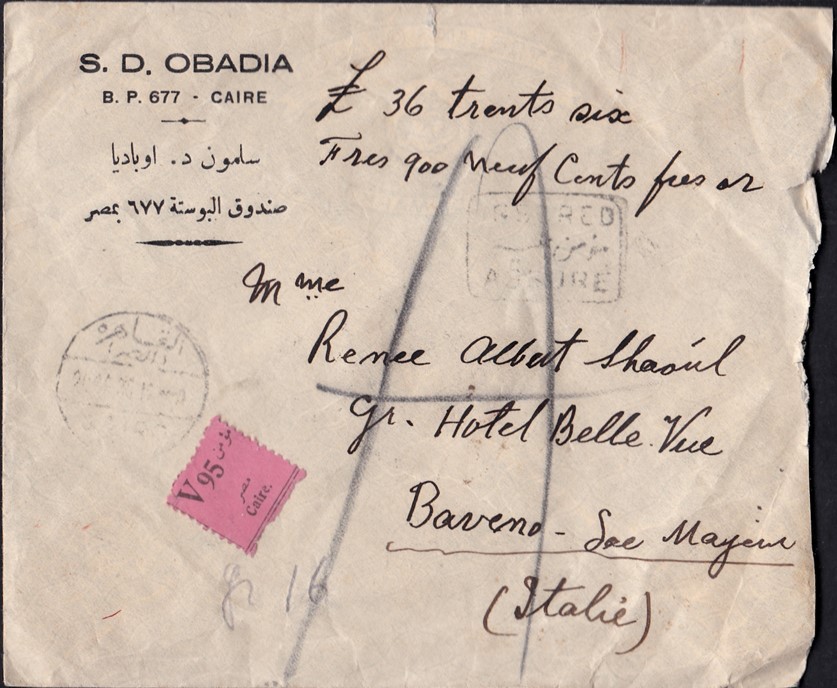 S. D. OBADIA
B. P. 677 - CAIRE
سامون د. اوباديا
صندوق البوستة ٦٧٧ بمصر
£ 36 trents six
Frcs 900 neuf Cents frcs or
مؤمن عليه
ASSURÉ
Mme
Renee Albert Shaoúl
Gr. Hotel Belle Vue
Baveno - Lac Majeur
(Italie)
القاهرة
V 95
مؤمن
مصر
Caire.
gr 16
A